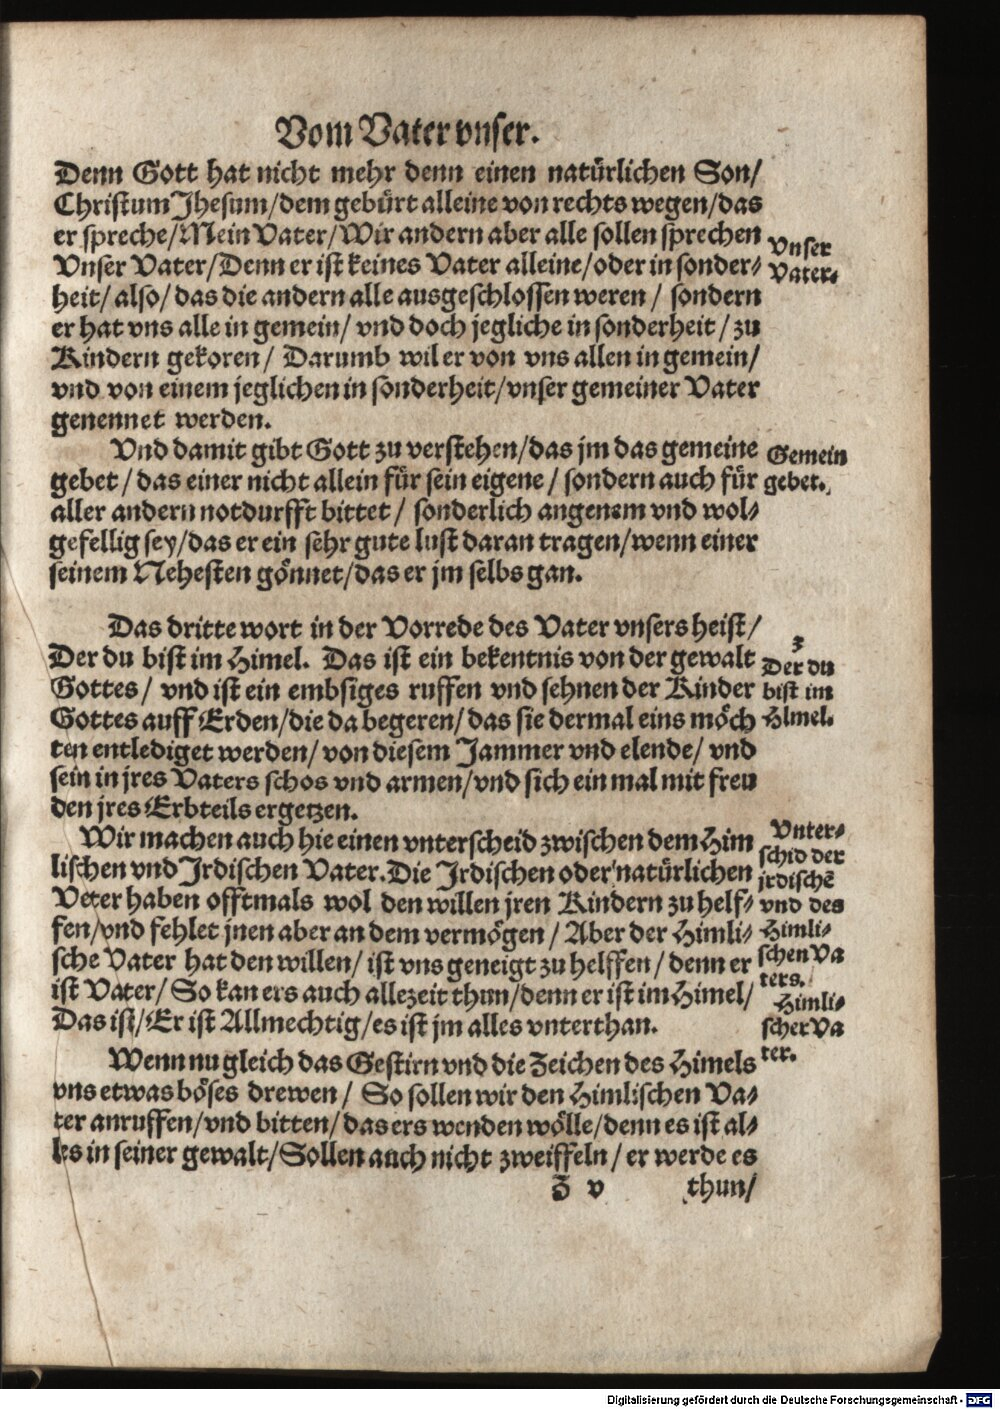 Vom Vater vnser.
Denn Gott hat nicht mehr denn einen natürlichen Son/
Christum Jhesum/dem gebürt alleine von rechts wegen/das
er spreche/Mein Vater/Wir andern aber alle sollen sprechen
Vnser Vater/Denn er ist keines Vater alleine/oder in sonder-
heit/also/das die andern alle ausgeschlossen weren/ sondern
er hat vns alle in gemein/ vnd doch jegliche in sonderheit/zu
Kindern gekoren/ Darumb wil er von vns allen in gemein/
vnd von einem jeglichen in sonderheit/vnser gemeiner Vater
genennet werden.
Vnser
Vater.
Vnd damit gibt Gott zu verstehen/das jm das gemeine
gebet/das einer nicht allein für sein eigene/ sondern auch für
aller andern notdurfft bittet/ sonderlich angenem vnd wol-
gefellig sey/das er ein sehr gute lust daran tragen/wenn einer
seinem Nehesten gönnet/das er jm selbs gan.
Gemein
gebet.
Das dritte wort in der Vorrede des Vater vnsers heist/
Der du bist im Himel. Das ist ein bekentnis von der gewalt
Gottes/ vnd ist ein embsiges ruffen vnd sehnen der Kinder
Gottes auff Erden/die da begeren/das sie dermal eins möch
ten entlediget werden/von diesem Jammer vnd elende/ vnd
sein in jres Vaters schos vnd armen/vnd sich ein mal mit freu
den jres Erbteils ergetzen.
3
Der du
bist im
Himel.
Wir machen auch hie einen vnterscheid zwischen dem Him
lischen vnd Jrdischen Vater. Die Jrdischen oder natürlichen
Veter haben offtmals wol den willen jren Kindern zu helf-
fen/vnd fehlet jnen aber an dem vermögen/ Aber der Himli-
sche Vater hat den willen/ ist vns geneigt zu helffen/ denn er
ist Vater/ So kan ers auch allezeit thun/denn er ist im Himel/
Das ist/Er ist Allmechtig/es ist jm alles vnterthan.
Vnter-
schid der
jrdischē
vnd des
Himli-
schen Va
ters.
Himli-
scher Va
ter.
Wenn nu gleich das Gestirn vnd die Zeichen des Himels
vns etwas böses drewen/ So sollen wir den Himlischen Va-
ter anruffen/vnd bitten/das ers wenden wölle/denn es ist al-
les in seiner gewalt/Sollen auch nicht zweiffeln/ er werde es
Z v thun/
Digitalisierung gefördert durch die Deutsche Forschungsgemeinschaft - DFG